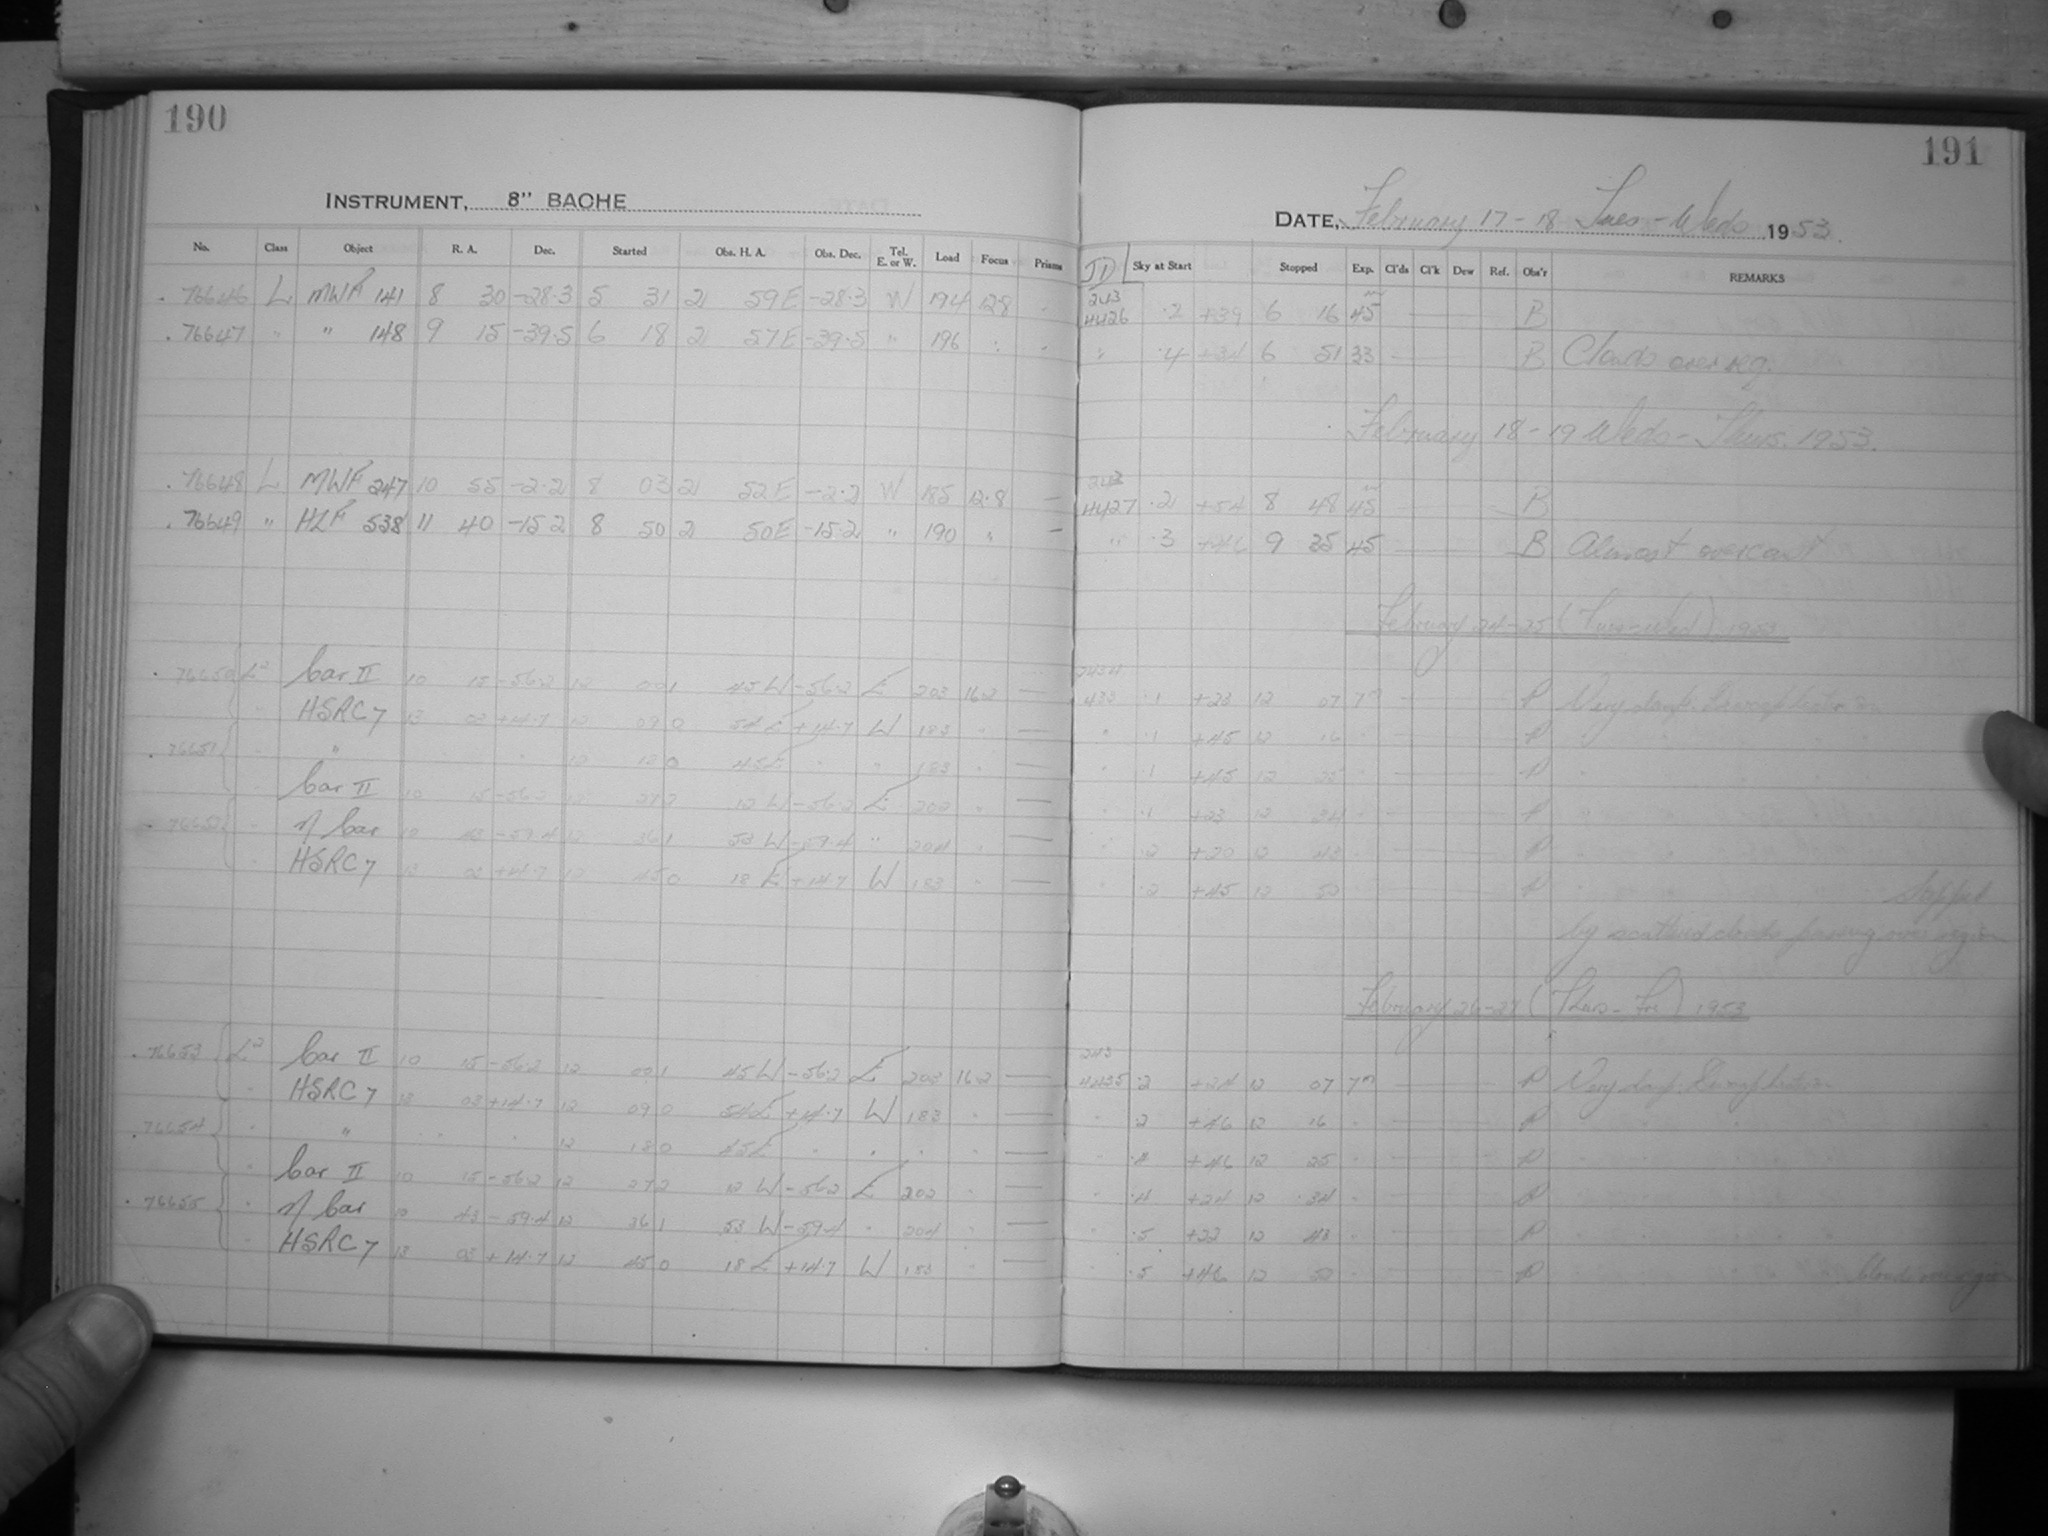 190
191
INSTRUMENT, 8" BACHE
DATE, February 17-18 Tues-Weds 1953
No. Class Object R. A. Dec. Started Obs. H. A. Obs. Dec. Tel. E. or W. Load Focus Prisms JD Sky at Start Stopped Exp. Cl'ds Cl'k Dew Ref. Obs'r REMARKS
76646 L MWF 141 8 30 -28.3 5 31 2 59E -28.3 W 194 12.8 243 4426 .2 +39 6 16 45 B
76647 " " 148 9 15 -39.5 6 18 2 57E -39.5 " 196 " .4 +34 6 51 33 B Clouds over reg.
February 18-19 Weds-Thurs. 1953.
76648 L MWF 247 10 55 -2.2 8 03 2 52E -2.2 W 185 12.8 — 243 4427 .2 +54 8 48 45 B
76649 " HLF 538 11 40 -15.2 8 50 2 50E -15.2 " 190 " — " .3 +46 9 35 45 B Almost overcast
February 24-25 (Tues-Wed) 1953
76650 L² Car II 10 15 -56.2 12 00 1 45W -56.2 E 203 16.2 — .1 +23 12 07 7m R Very damp.
" HSRC 7 13 03 +14.7 12 09 0 54E +14.7 W 183 " — " .1 +45 12 16 R
76651 " " 12 18 0 45E " " 183 " — " .1 +45 12 25 R
" Car II 10 15 -56.2 12 27 2 12W -56.2 E 202 " — " .1 +23 12 34 R
76652 " η Car 10 43 -59.4 12 36 1 53W -59.4 " 204 " — " .2 +20 12 43 R
" HSRC 7 13 03 +14.7 12 45 0 18E +14.7 W 183 " — " .2 +45 12 52 R Stopped
by scattered clouds passing over region
February 26-27 (Thurs-Fri) 1953
76653 L² Car II 10 15 -56.2 12 00 1 45W -56.2 E 203 16.2 — 243 4435 .2 +24 12 07 7m R Very damp.
" HSRC 7 13 03 +14.7 12 09 0 54E +14.7 W 183 " — " .2 +46 12 16 R
76654 " " 12 18 0 45E " " " " — " .4 +46 12 25 R
" Car II 10 15 -56.2 12 27 2 12W -56.2 E 202 " — " .4 +24 12 34 R
76655 " η Car 10 43 -59.4 12 36 1 53W -59.4 " 204 " — " .5 +22 12 43 R
" HSRC 7 13 03 +14.7 12 45 0 18E +14.7 W 183 " — " .5 +46 12 52 R